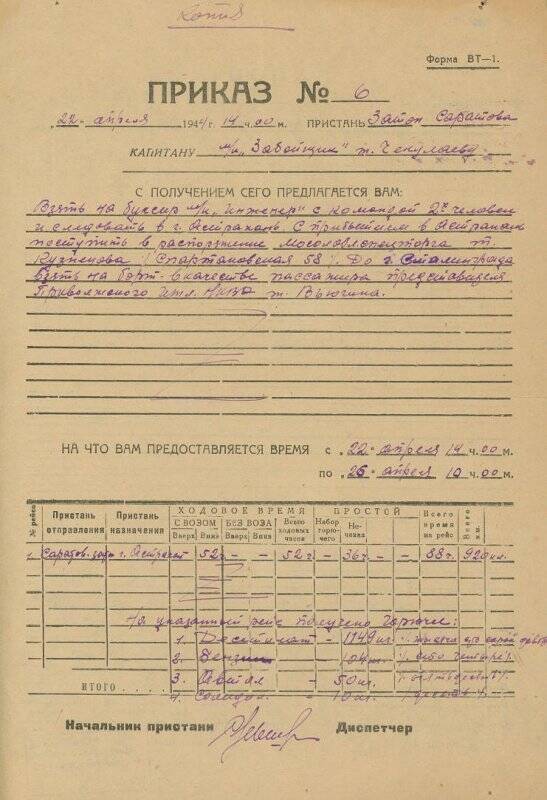 Копия
Форма ВТ—1.
ПРИКАЗ № 6
„22„ апреля 1944г. 14 ч. 00 м. ПРИСТАНЬ Затон Саратова
КАПИТАНУ м/к „Забойщик" т. Чекулаеву
С ПОЛУЧЕНИЕМ СЕГО ПРЕДЛАГАЕТСЯ ВАМ:
Взять на буксир м/к „Инженер" с командой 2х человек
и следовать в г. Астрахань. С прибытием в Астрахань
поступить в распоряжение т.
Кузнецова / Спартаковская 58/. До г. Сталинграда
взять на борт в качестве пассажира представителя
Приволжского НКВД т. Вьюгина.
НА ЧТО ВАМ ПРЕДОСТАВЛЯЕТСЯ ВРЕМЯ с „22„ апреля 14 ч. 00 м.
по „26„ апреля 10 ч. 00 м.
№ рейса Пристань отправления Пристань назначения ХОДОВОЕ ВРЕМЯ ПРОСТОЙ Всего время на рейс Всего км.
С ВОЗОМ БЕЗ ВОЗА Всего ходовых часов Набор горючего
Вверх Вниз Вверх Вниз
1 Саратов. затон г. Астрахань 52ч. – – 52ч. – 36ч. – – 88ч. 920км.
На указанный рейс получено горючее:
1. Дестиллат – 1149кг.
2. Бензин 104кг. /сто четыре/
3. Автол – 50кг. /пятьдесят/
ИТОГО 4. Солидол – 10кг. /десять/
Начальник пристани Диспетчер